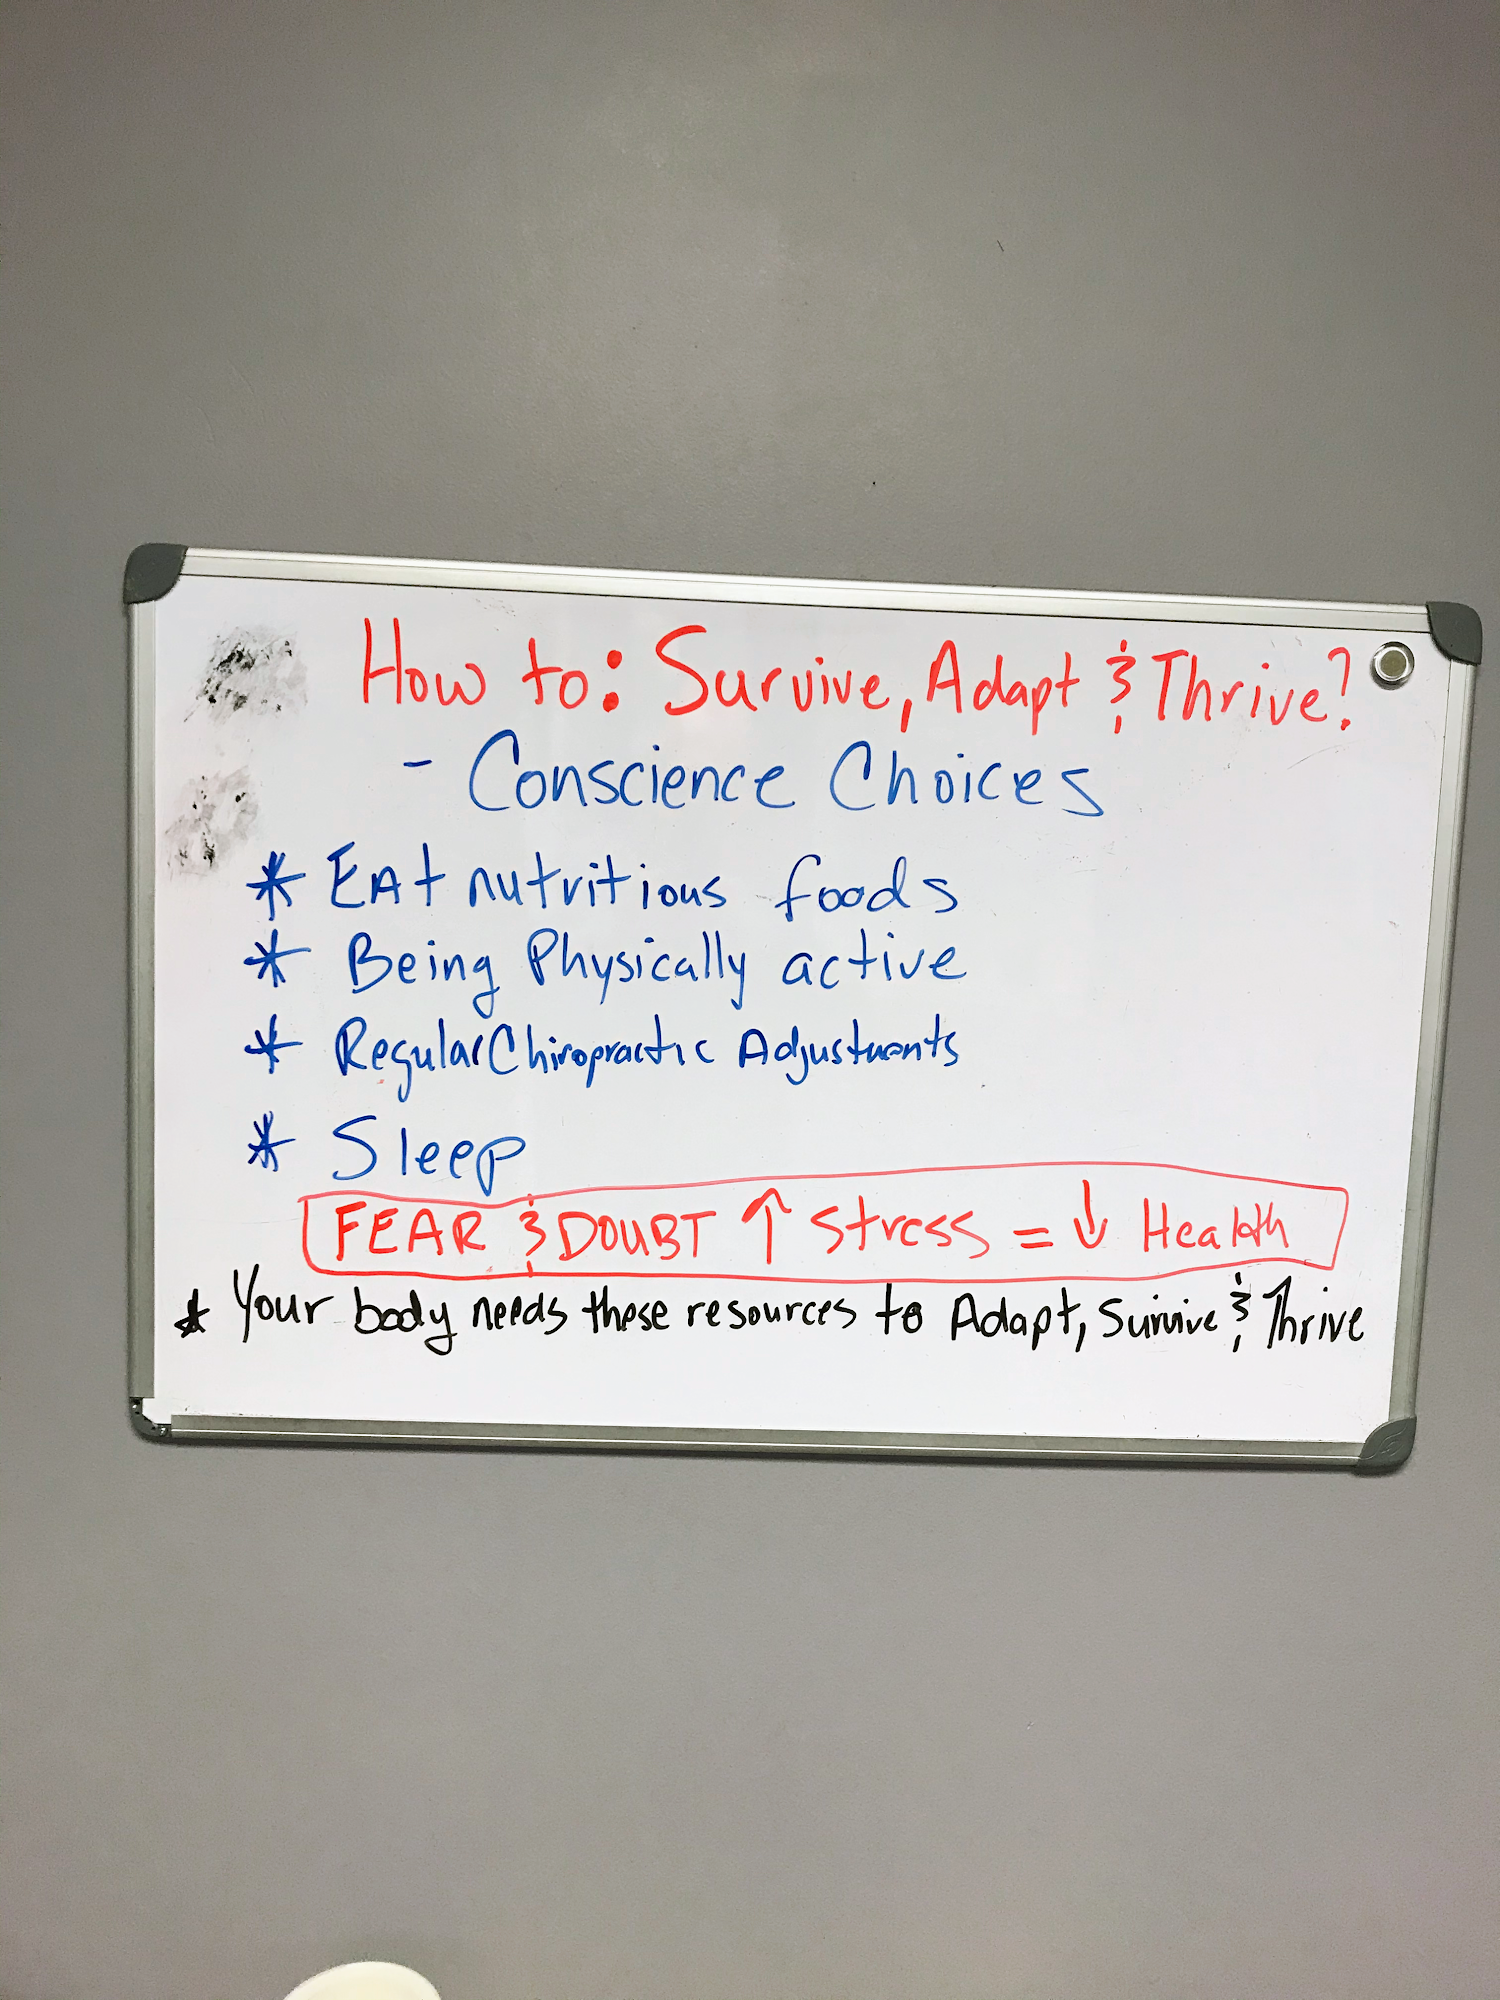 How to: Survive, Adapt & Thrive?
- Conscience Choices
* EAt nutritious foods
* Being Physically active
* Regular Chiropractic Adjustments
* Sleep
FEAR & DOUBT ↑ Stress = ↓ Health
* Your body needs these resources to Adapt, Survive & Thrive